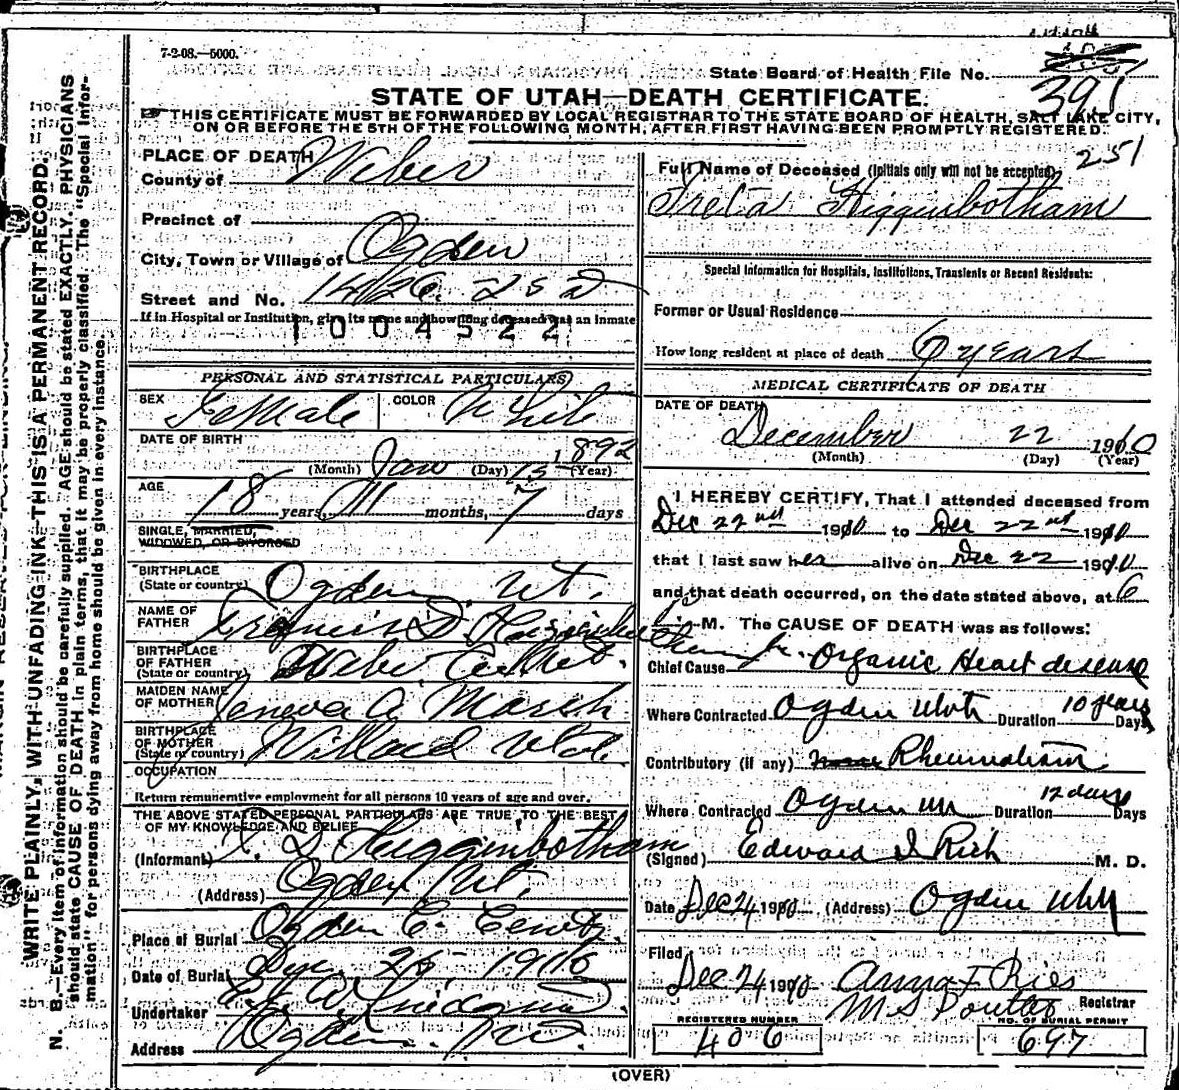 7-2-08.—5000.
State Board of Health File No. 391
STATE OF UTAH—DEATH CERTIFICATE.
THIS CERTIFICATE MUST BE FORWARDED BY LOCAL REGISTRAR TO THE STATE BOARD OF HEALTH, SALT LAKE CITY,
ON OR BEFORE THE 5TH OF THE FOLLOWING MONTH, AFTER FIRST HAVING BEEN PROMPTLY REGISTERED.
251
WRITE PLAINLY, WITH UNFADING INK—THIS IS A PERMANENT RECORD.
N. B.—Every item of information should be carefully supplied. AGE should be stated EXACTLY. PHYSICIANS
should state CAUSE OF DEATH in plain terms, that it may be properly classified. The "Special Infor-
mation" for persons dying away from home should be given in every instance.
PLACE OF DEATH
County of Weber
Precinct of
City, Town or Village of Ogden
Street and No. 1426 22d
If in Hospital or Institution, give its name and how long deceased was an inmate
1004522
PERSONAL AND STATISTICAL PARTICULARS
SEX Female COLOR White
DATE OF BIRTH
(Month) Jan (Day) 15 1892 (Year)
AGE 18 years, 11 months, 7 days
SINGLE, MARRIED,
WIDOWED, OR DIVORCED
BIRTHPLACE
(State or country) Ogden Ut.
NAME OF
FATHER Francis D. Higginbotham Jr.
BIRTHPLACE
OF FATHER
(State or country) Weber
MAIDEN NAME
OF MOTHER Geneva A Marsh
BIRTHPLACE
OF MOTHER
(State or country) Willard Utah
OCCUPATION
Return remunerative employment for all persons 10 years of age and over.
THE ABOVE STATED PERSONAL PARTICULARS ARE TRUE TO THE BEST
OF MY KNOWLEDGE AND BELIEF
(Informant) F. D. Higginbotham
(Address) Ogden Ut.
Place of Burial Ogden C. Cemty.
Date of Burial 1910
Undertaker
Address Ogden
Full Name of Deceased (Initials only will not be accepted)
Treta Higginbotham
Special Information for Hospitals, Institutions, Transients or Recent Residents:
Former or Usual Residence
How long resident at place of death years
MEDICAL CERTIFICATE OF DEATH
DATE OF DEATH
December 22 1910
(Month) (Day) (Year)
I HEREBY CERTIFY, That I attended deceased from
Dec 22nd 1910 to Dec 22nd 1910
that I last saw her alive on Dec 22 1910
and that death occurred, on the date stated above, at 6
M. The CAUSE OF DEATH was as follows:
Chief Cause Organic Heart disease
Where Contracted Ogden Utah Duration 10 years Days
Contributory (if any) none Rheumatism
Where Contracted Ogden Duration 12 days Days
(Signed) Edward I Rich M. D.
Date Dec 24 1910 (Address) Ogden Utah
Filed
Dec 24 1910 Anna F Ries
M S Poulter Registrar
REGISTERED NUMBER NO. OF BURIAL PERMIT
406 697
(OVER)